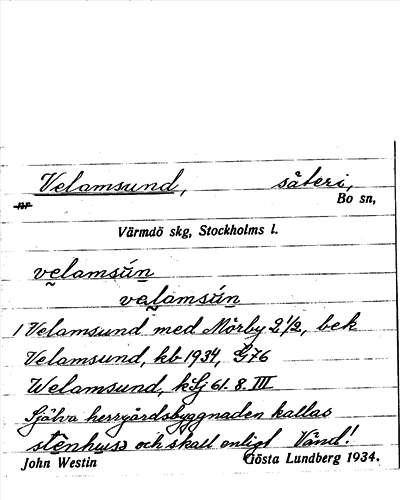 Velamsund, säteri,
nr Bo sn,
Värmdö skg, Stockholms l.
vęlamsún
valamsún
1 Velamsund med Mörby 2 1/2, bek
Velamsund, kb 1934, G76
Welamsund, kSj 61. 8. III
Själva herrgårdsbyggnaden kallas
stēnhuso och skall enligt Vänd!
John Westin Gösta Lundberg 1934.